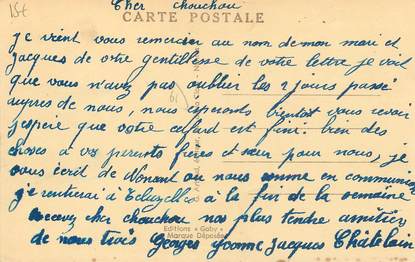 15€
Cher chouchou
CARTE POSTALE
je vient vous remercier au nom de mon mari et
Jacques de votre gentillesse de votre lettre je voit
que vous n'avez pas oublier les 2 jours passé
aupres de nous, nous esperons bientot vous revoir
j'espere que votre cafard est fini. bien des
choses a vos parents frères et sœur pour nous, je
vous écrit de Nonant ou nous somme en
je rentrerai à à la fin de la semaine
recevez cher chouchou nos plus tendre amitiés
Editions « Gaby »
Marque Déposée
de nous trois Georges Yvonne Jacques Châtelain